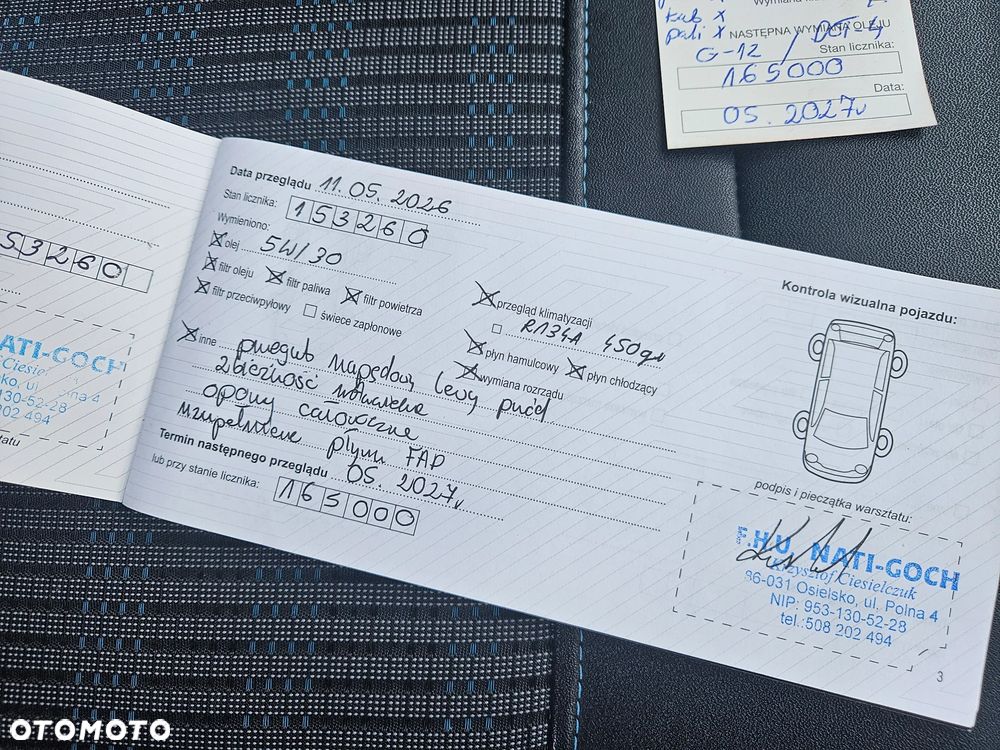 kab x
pali x NASTĘPNA WYMIANA OLEJU
G-12 / DOT-4
Stan licznika:
165000
Data:
05. 2027r
53260
NATI-GOCH
Ciesiel
sko, ul.
na 4
953-130-52-28
202 494
Data przeglądu 11. 05. 2026
Stan licznika: 153260
Wymieniono:
olej 5W/30
filtr oleju filtr paliwa filtr powietrza
filtr przeciwpyłowy świece zapłonowe
inne przegub napędowy lewy przód
zbieżność
opony całoroczne
uzupełnienie płynu FAP
Termin następnego przeglądu 05. 2027r
lub przy stanie licznika: 165000
przegląd klimatyzacji
R134A 450gr
płyn hamulcowy płyn chłodzący
wymiana rozrządu
Kontrola wizualna pojazdu:
podpis i pieczątka warsztatu:
F.H.U. NATI-GOCH
Krzysztof Ciesielczuk
86-031 Osielsko, ul. Polna 4
NIP: 953-130-52-28
tel.:508 202 494
3
OTOMOTO